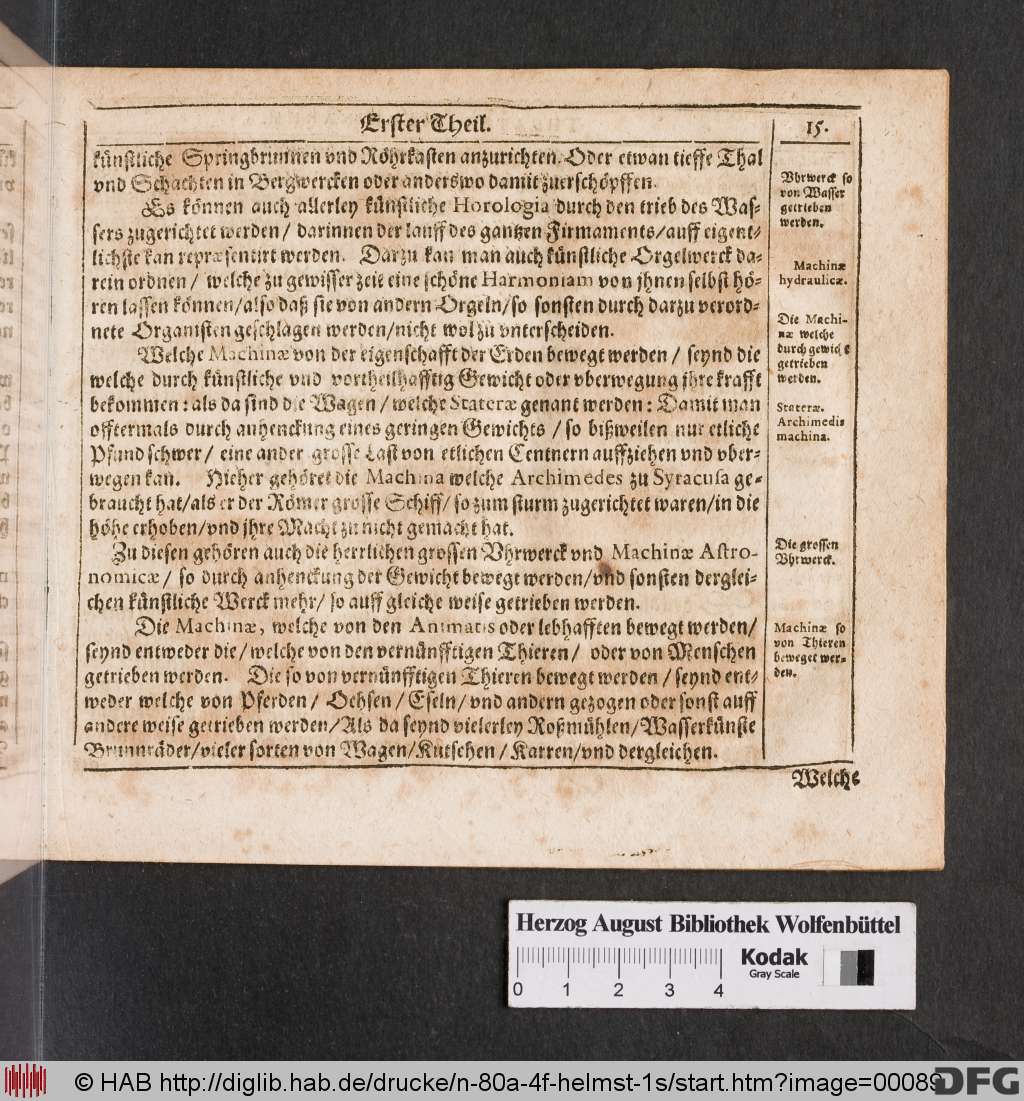 Erster Theil.
15.
künstliche Springbrunnen vnd Röhrkasten anzurichten. Oder etwan tieffe Thal
vnd Schachten in Bergwercken oder anderswo damit zuerschöpffen.
Es können auch allerley künstliche Horologia durch den trieb des Was-
sers zugerichtet werden/ darinnen der lauff des gantzen Firmaments/auff eigent-
lichste kan repræsentirt werden. Darzu kan man auch künstliche Orgelwerck da-
rein ordnen/ welche zu gewisser zeit eine schöne Harmoniam von jhnen selbst hö-
ren lassen können/also daß sie von andern Orgeln/so sonsten durch darzu verord-
nete Organisten geschlagen werden/nicht wol zu vnterscheiden.
Welche Machinæ von der eigenschafft der Erden bewegt werden/ seynd die
welche durch künstliche vnd vortheilhafftig Gewicht oder vberwegung jhre krafft
bekommen: als da sind die Wagen/ welche Stateræ genant werden: Damit man
offtermals durch anhenckung eines geringen Gewichts/ so bißweilen nur etliche
Pfund schwer/ eine ander grosse Last von etlichen Centnern auffziehen vnd vber-
wegen kan. Hieher gehöret die Machina welche Archimedes zu Syracusa ge-
braucht hat/als er der Römer grosse Schiff/ so zum sturm zugerichtet waren/in die
höhe erhoben/vnd jhre Macht zu nicht gemacht hat.
Zu diesen gehören auch die herrlichen grossen Vhrwerck vnd Machinæ Astro-
nomicæ/ so durch anhenckung der Gewicht bewegt werden/vnd sonsten derglei-
chen künstliche Werck mehr/ so auff gleiche weise getrieben werden.
Die Machinæ, welche von den Animatis oder lebhafften bewegt werden/
seynd entweder die/ welche von den vernünfftigen Thieren/ oder von Menschen
getrieben werden. Die so von vernünfftigen Thieren bewegt werden/ seynd ent-
weder welche von Pferden/ Ochsen/ Eseln/ vnd andern gezogen oder sonst auff
andere weise getrieben werden/Als da seynd vielerley Roßmühlen/Wasserkünste
Brunnräder/vieler sorten von Wagen/Kutschen/Karren/vnd dergleichen.
Vhrwerck so
von Wasser
getrieben
werden.
Machinæ
hydraulicæ.
Die Machi-
næ welche
durch gewicht
getrieben
werden.
Stateræ.
Archimedis
machina.
Die grossen
Vhrwerck.
Machinæ so
von Thieren
beweget wer-
den.
Welche
Herzog August Bibliothek Wolfenbüttel
Kodak
Gray Scale
0 1 2 3 4
© HAB http://diglib.hab.de/drucke/n-80a-4f-helmst-1s/start.htm?image=00089
DFG